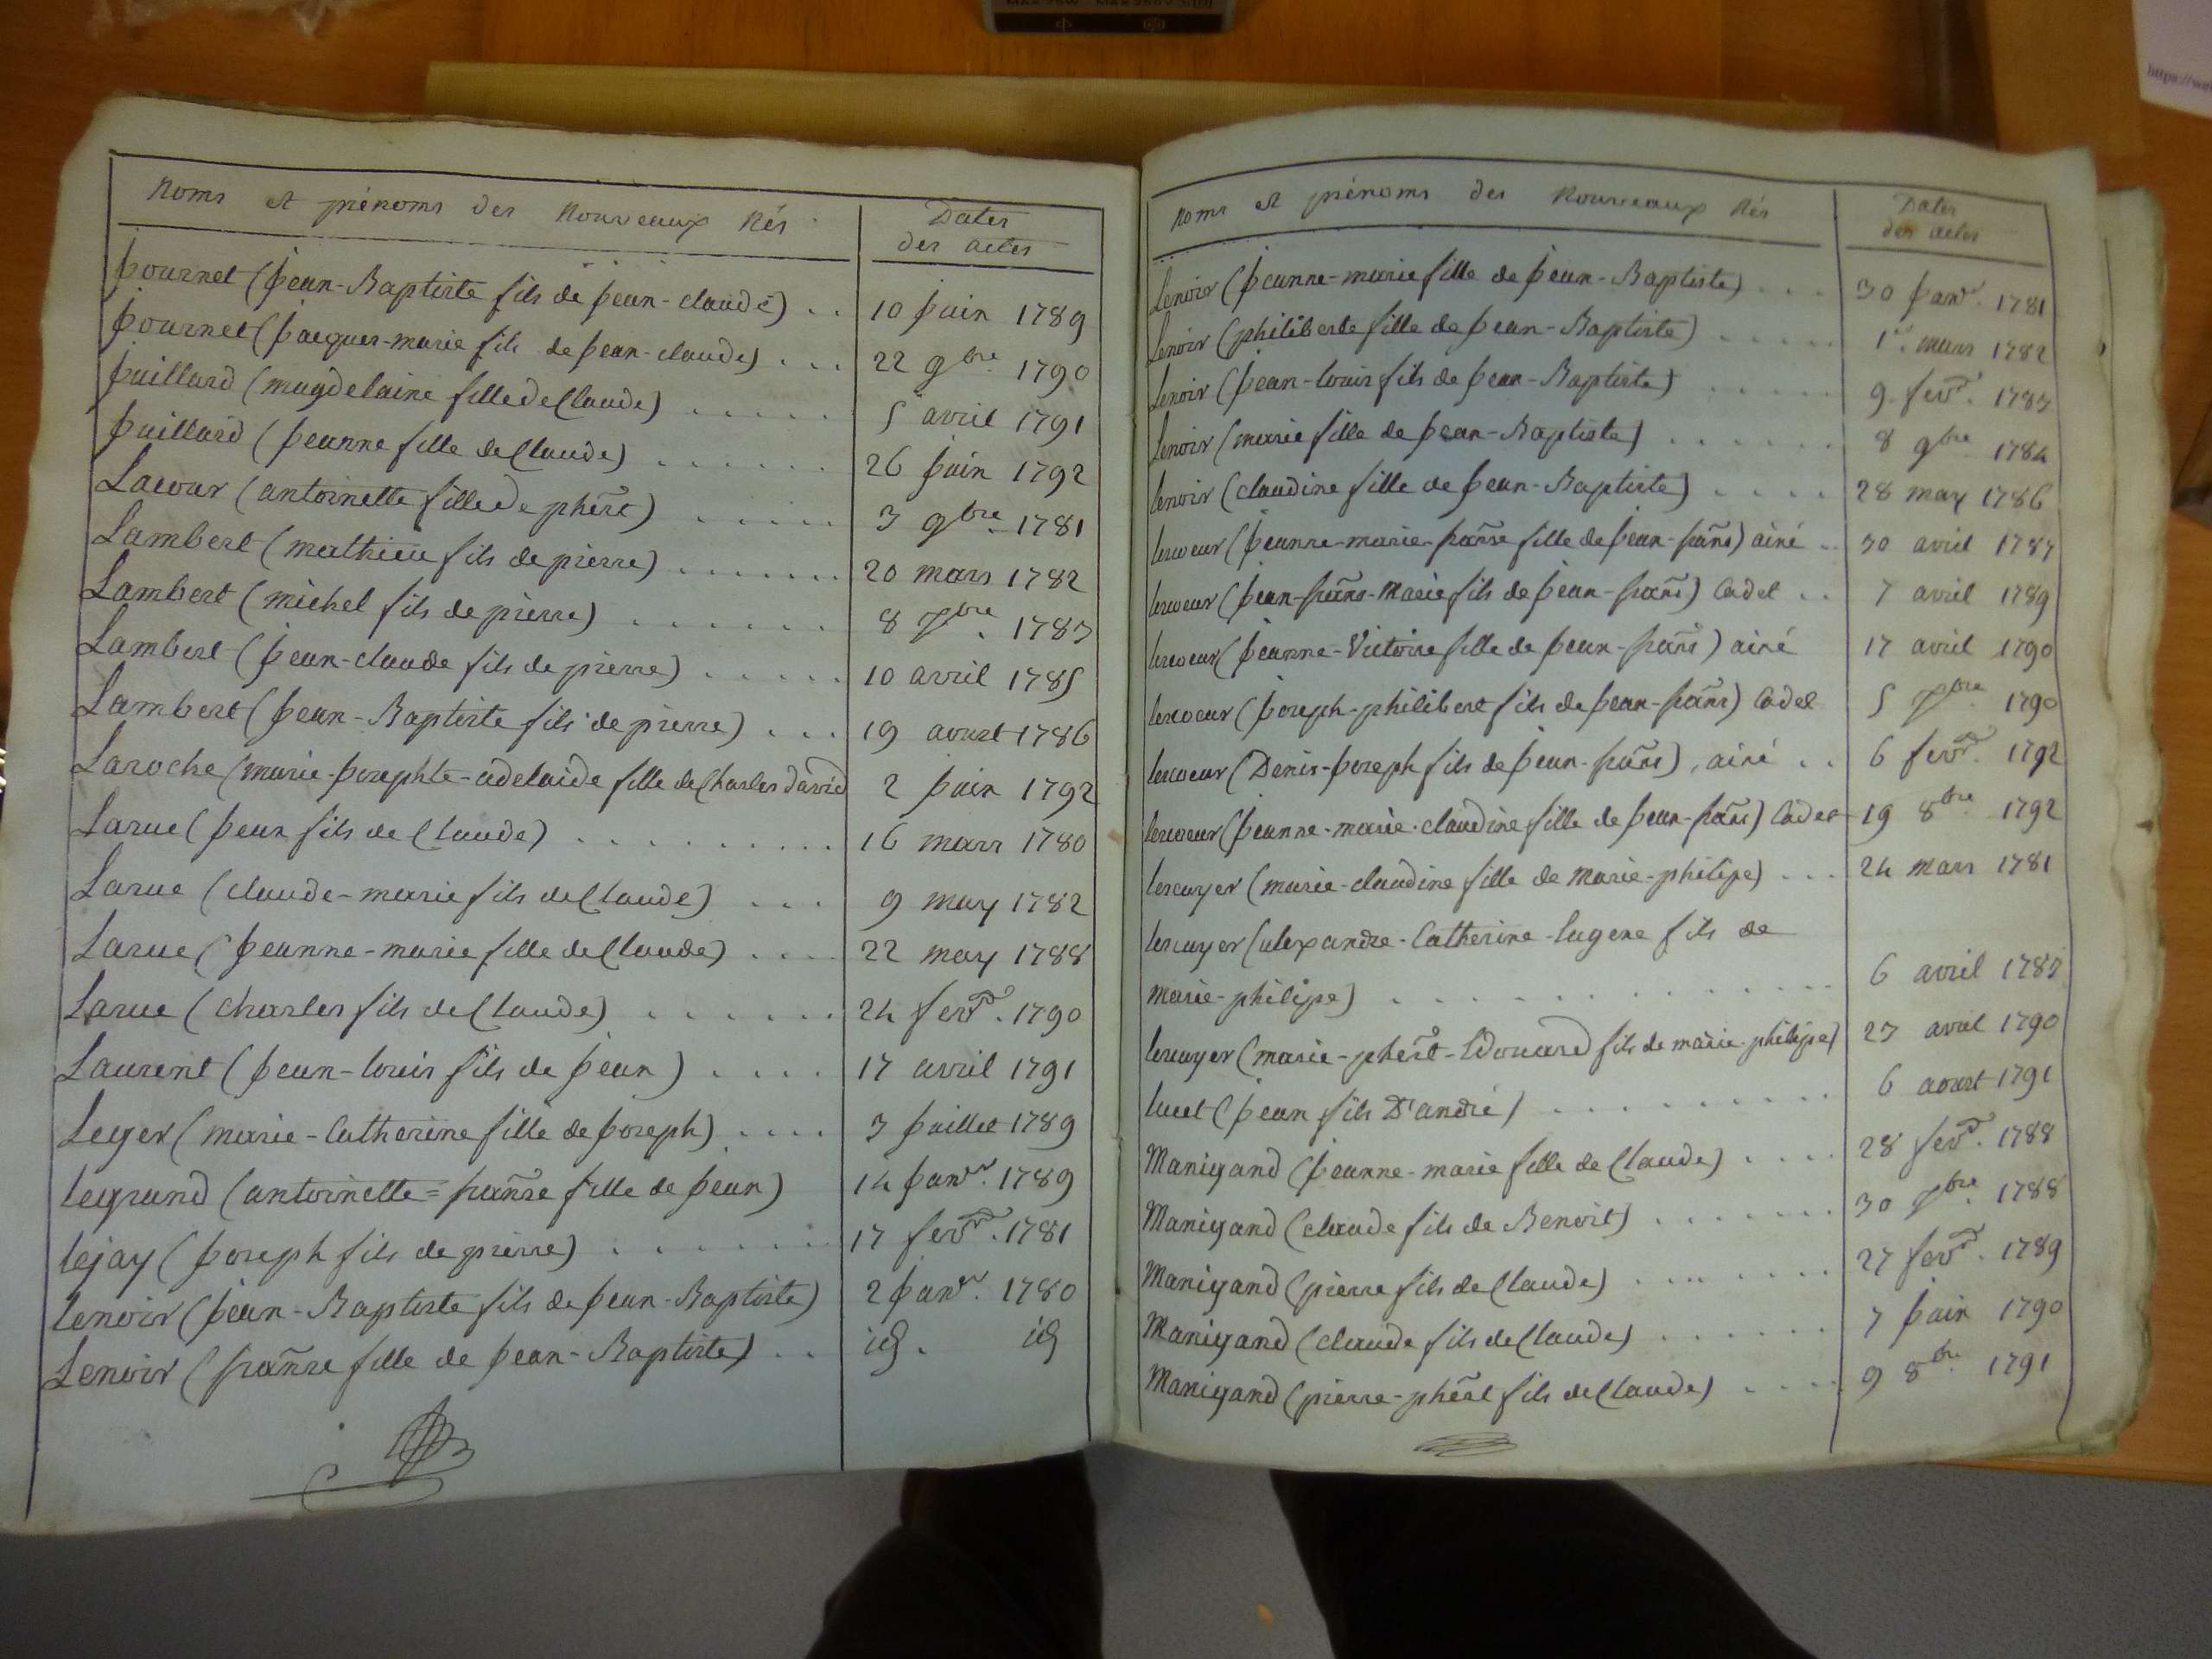 Noms et prénoms des Nouveaux Nés
Dates des actes
Journet (Jean-Baptiste fils de Jean-claude) . . 10 Juin 1789
Journet (Jacques-marie fils de Jean-claude) . . . 22 9bre 1790
Juillard (magdelaine fille de Claude) . . . . . 5 avril 1791
Juillard (Jeanne fille de Claude) . . . . . . 26 Juin 1792
Lacour (antoinette fille de phert) . . . . . 3 9bre 1781
Lambert (mathieu fils de pierre) . . . . . . . 20 mars 1782
Lambert (michel fils de pierre) . . . . . . 8 7bre. 1783
Lambert (Jean-claude fils de pierre) . . . . . 10 avril 1785
Lambert (Jean-Baptiste fils de pierre) . . . 19 aoust 1786
Laroche (marie-Josephte-adelaide fille de Charles David 2 Juin 1792
Larue (Jean fils de Claude) . . . . . . . . . . 16 mars 1780
Larue (claude-marie fils de Claude) . . . 9 may 1782
Larue (Jeanne-marie fille de Claude) . . . . 22 may 1788
Larue (charles fils de Claude) . . . . . . 24 fevr. 1790
Laurent (Jean-louis fils de Jean) . . . . 17 avril 1791
Leger (marie-Catherine fille de Joseph) . . . . 3 Juillet 1789
legrand (antoinette=franse fille de Jean) 14 Janvr. 1789
lejay (Joseph fils de pierre) . . . . . . 17 fevr. 1781
lenoir (Jean-Baptiste fils de Jean-Baptiste) 2 Janvr. 1780
Lenoir (franse fille de Jean-Baptiste) . . id. id
Noms et prénoms des Nouveaux Nés
Dates des actes
Lenoir (Jeanne-marie fille de Jean-Baptiste) . . . 30 Janvr. 1781
Lenoir (philiberte fille de Jean-Baptiste) . . . . . 1er. mars 1782
Lenoir (Jean-louis fils de Jean-Baptiste) . . . . . 9 fevr. 1783
Lenoir (marie fille de Jean-Baptiste) . . . . . . 8 9bre 1784
lenoir (claudine fille de Jean-Baptiste) . . . . 28 may 1786
lescoeur (Jeanne-marie-franse fille de Jean-frans) ainé . . 30 avril 1787
lescoeur (Jean-frans-Marie fils de Jean-frans) Cadet . . 7 avril 1789
lescoeur (Jeanne-Victoire fille de Jean-frans) ainé 17 avril 1790
lescoeur (Joseph-philibert fils de Jean-frans) Cadet 5 7bre 1790
lescoeur (Denis-Joseph fils de Jean-frans), ainé . . 6 fevr. 1792
lescoeur (Jeanne-marie-claudine fille de Jean-frans) Cadet 19 8bre. 1792
lescuyer (marie-claudine fille de Marie-philipe) . . . 24 mars 1781
lescuyer (alexandre-Catherine-Eugene fils de
marie-philipe) . . . . . . . . . . . . . 6 avril 1787
lescuyer (marie-phert-Edouard fils de marie-philipe) 23 avril 1790
lucet (Jean fils D'andré) . . . . . . . . . 6 aoust 1791
Manigand (Jeanne-marie fille de Claude) . . . . 28 fevr. 1788
Manigand (claude fils de Benoit) . . . . . . . 30 7bre. 1788
Manigand (pierre fils de Claude) . . . . . . . 27 fevr. 1789
Manigand (claude fils de Claude) . . . . . . 7 Juin 1790
Manigand (pierre-phert fils de Claude) . . . . 9 8bre. 1791